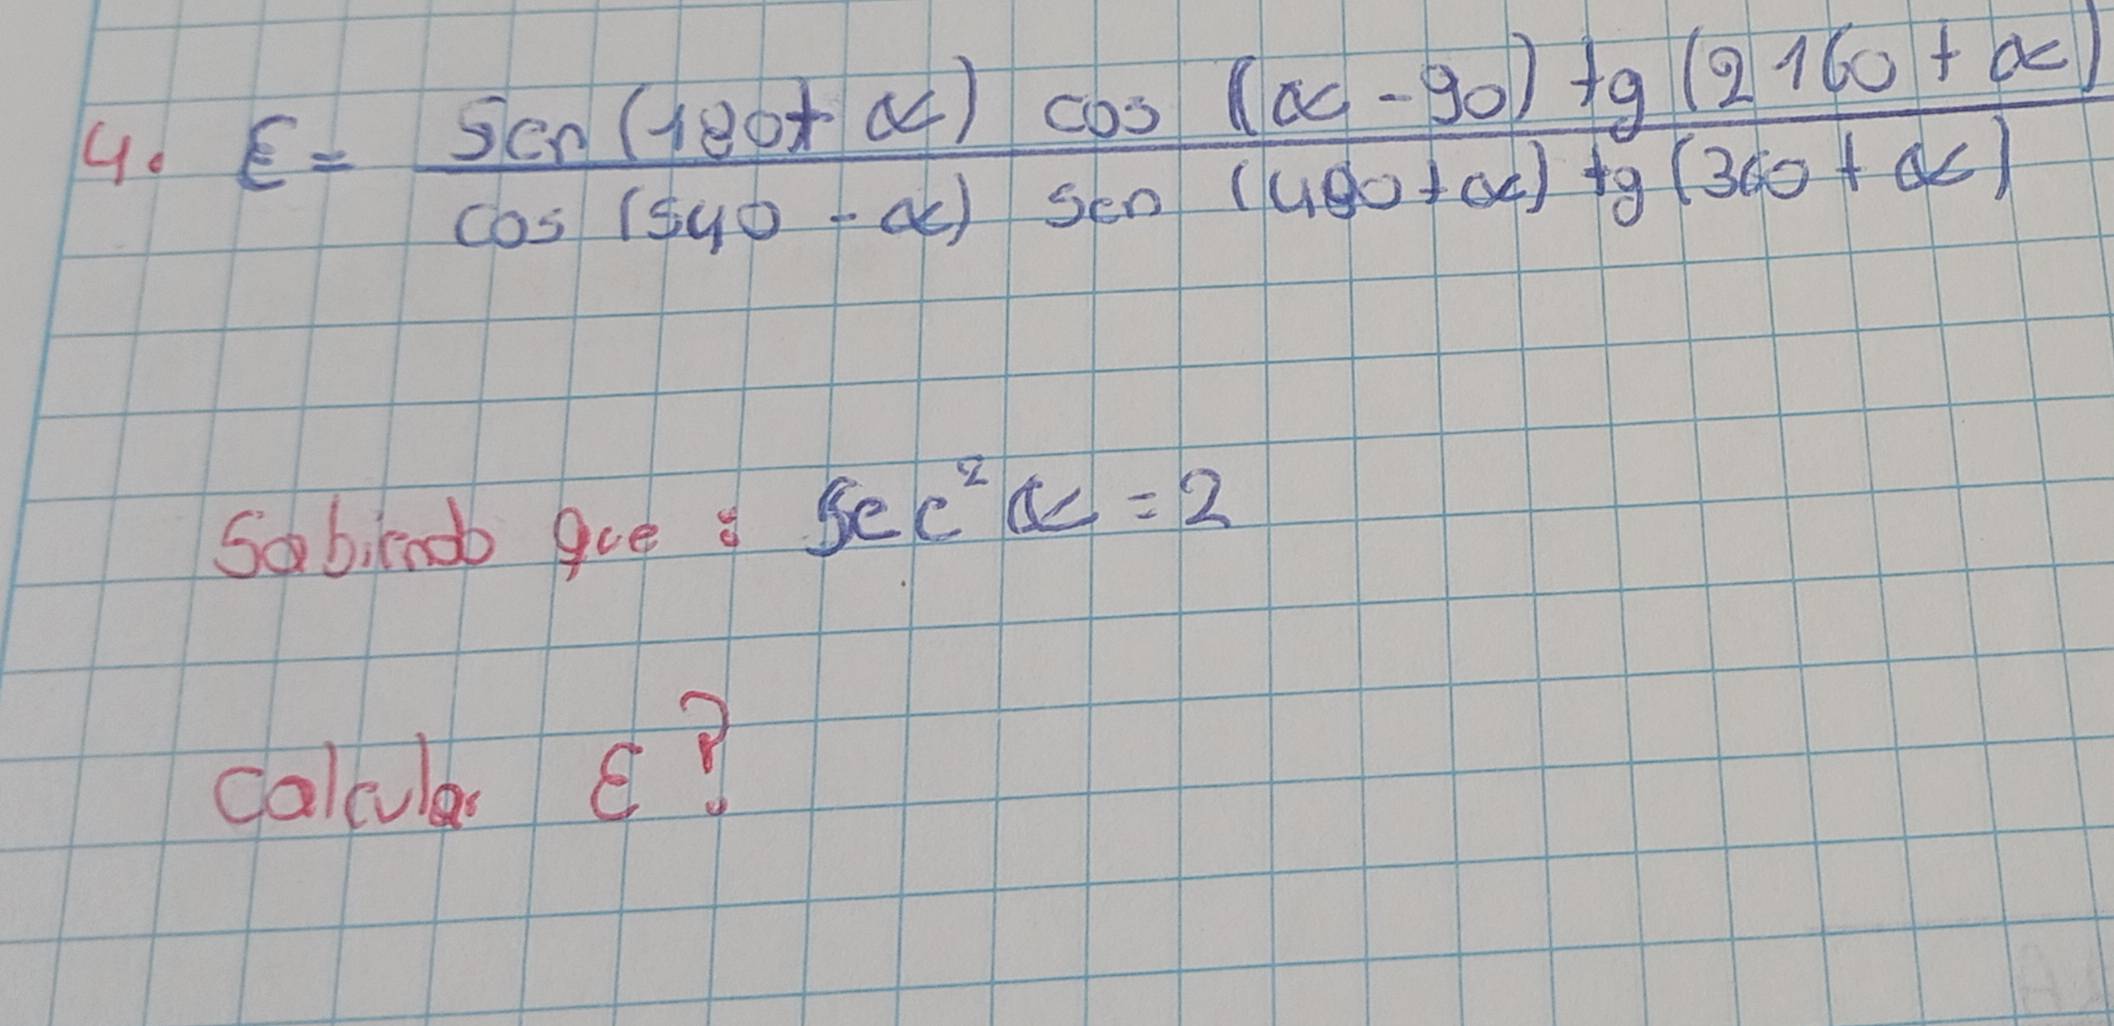 4. E = sen (180 + α) cos (α - 90) tg (2160 + α)
cos (540 - α) sen (480 + α) tg (360 + α)
Sabiendo que : Sec² α = 2
calcular E?